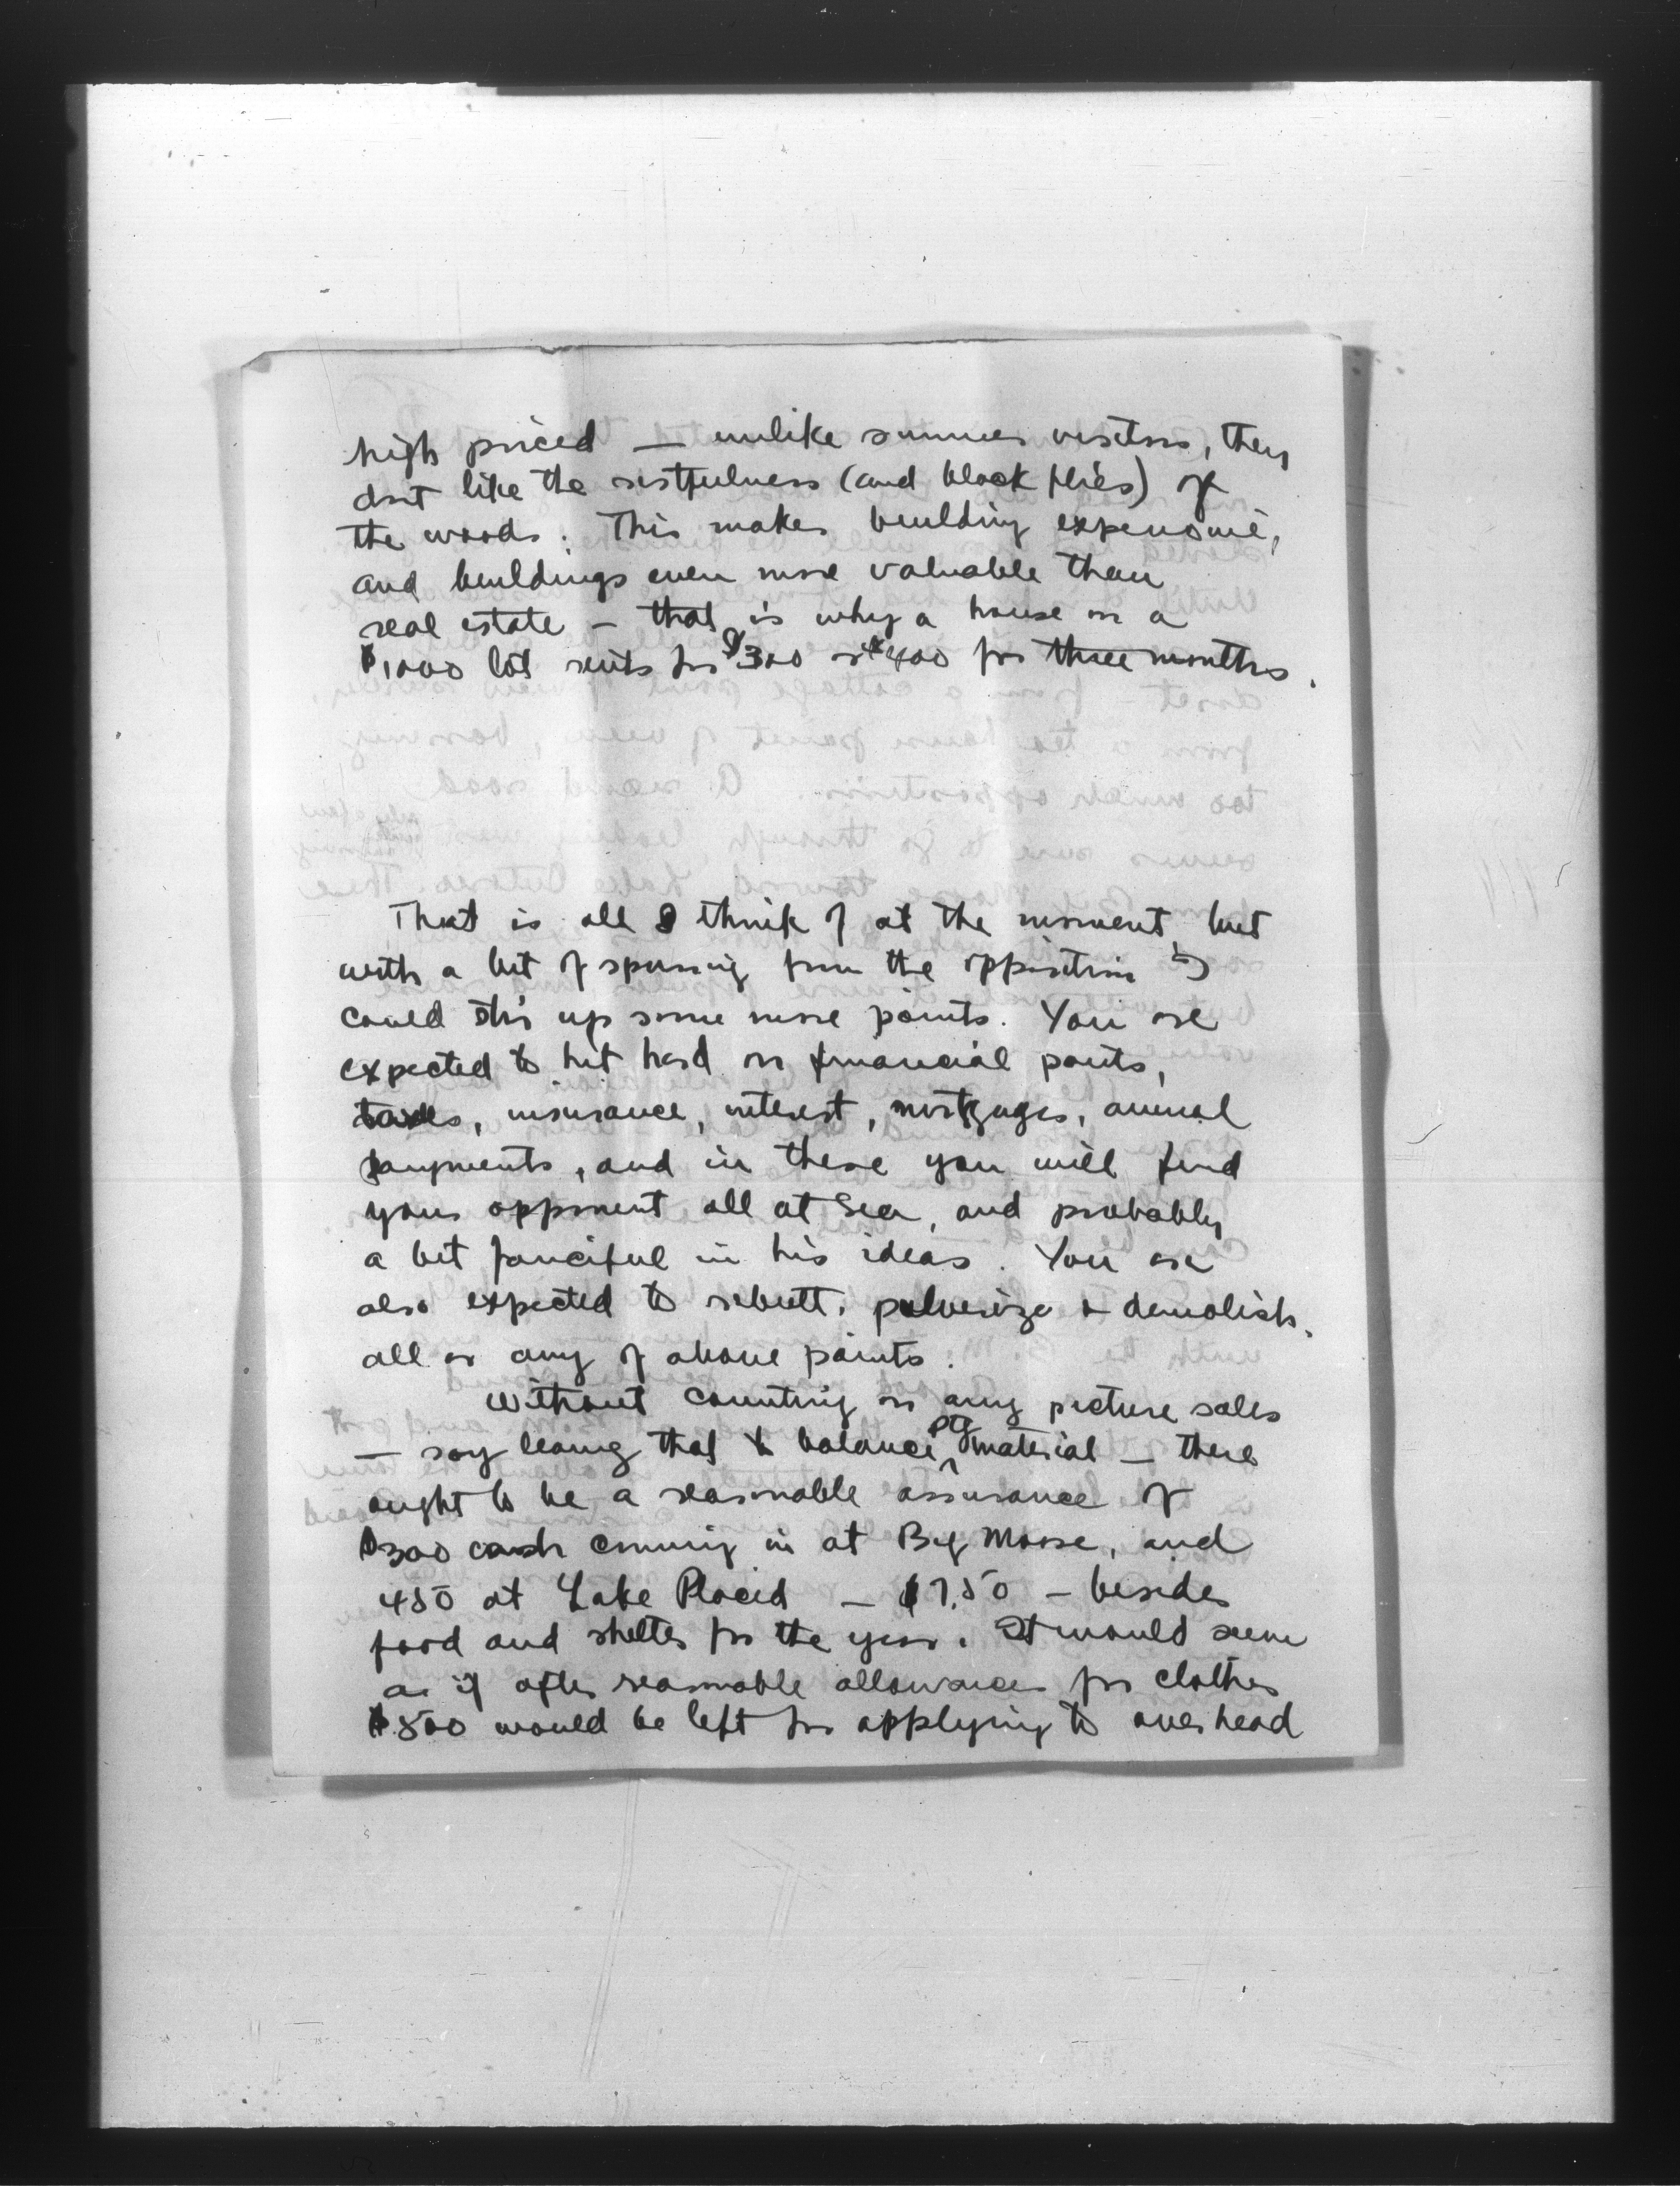 high priced — unlike summer visitors, they
dont like the restfulness (and black flies) of
the woods. This makes building expensive,
and buildings even more valuable than
real estate – that is why a house on a
$1000 lot rents for $300 or $400 for three months.
That is all I think of at the moment, but
with a bit of sparring from the opposition I
could stir up some more points. You are
expected to hit hard on financial points,
taxes, insurance, interest, mortgages, annual
payments, and in these you will find
your opponent all at sea, and probably
a bit fanciful in his ideas. You are
also expected to rebutt, pulverize & demolish,
all or any of above points.
Without counting on any picture sales
— say leaving that to balance ptg material — there
ought to be a reasonable assurance of
$300 cash coming in at Big Moose, and
450 at Lake Placid — $7.50 — besides
food and shelter for the year. It would seem
as if after reasonable allowances for clothes
$500 would be left for applying to overhead